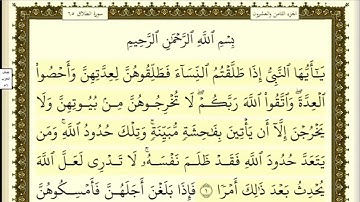 الجزء الثامن والعشرون
سورة الطلاق ٦٥
بِسْمِ ٱللَّهِ ٱلرَّحْمَٰنِ ٱلرَّحِيمِ
يَٰٓأَيُّهَا ٱلنَّبِيُّ إِذَا طَلَّقْتُمُ ٱلنِّسَآءَ فَطَلِّقُوهُنَّ لِعِدَّتِهِنَّ وَأَحْصُوا۟
ٱلْعِدَّةَ ۖ وَٱتَّقُوا۟ ٱللَّهَ رَبَّكُمْ ۖ لَا تُخْرِجُوهُنَّ مِنۢ بُيُوتِهِنَّ وَلَا
يَخْرُجْنَ إِلَّآ أَن يَأْتِينَ بِفَٰحِشَةٍ مُّبَيِّنَةٍ ۚ وَتِلْكَ حُدُودُ ٱللَّهِ ۚ وَمَن
يَتَعَدَّ حُدُودَ ٱللَّهِ فَقَدْ ظَلَمَ نَفْسَهُۥ ۚ لَا تَدْرِى لَعَلَّ ٱللَّهَ
يُحْدِثُ بَعْدَ ذَٰلِكَ أَمْرًا ١ فَإِذَا بَلَغْنَ أَجَلَهُنَّ فَأَمْسِكُوهُنَّ